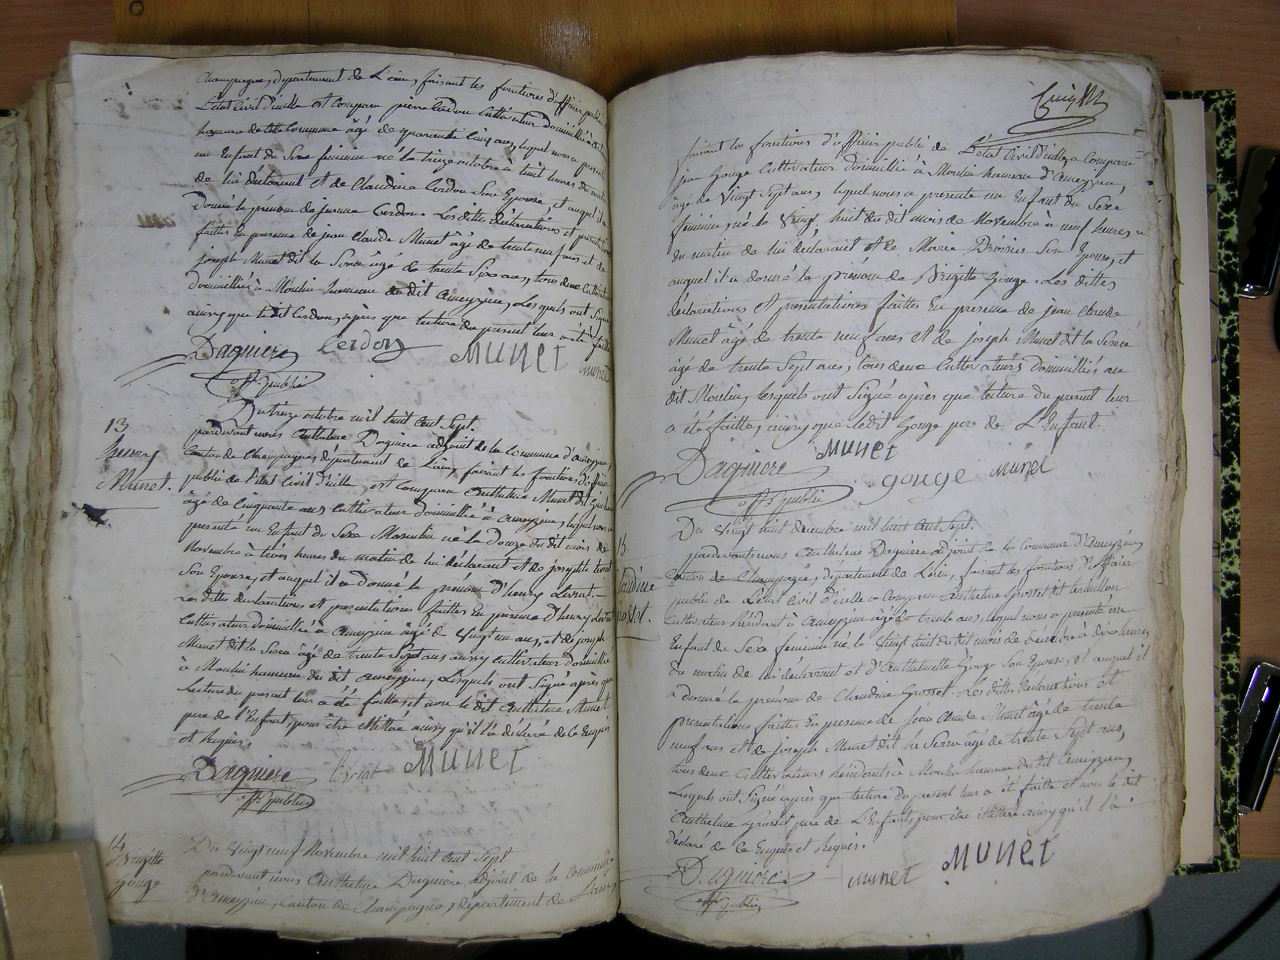 Champagne, département de L'ain, faisant les fonctions d'officier public de
L'état Civil d'icelle est comparu pierre Cerdon Cultivateur domicilié à
hameau de dite Commune âgé de quarante cinq ans, lequel nous a présenté
un Enfant du Sexe féminin né le treize octobre à huit heures du matin
de lui déclarant et de Claudine Cerdon Son Epouse, et auquel il a
donné le prénom de jeanne Cerdon. Les dittes déclarations et présentations
faittes En présence de jean Claude Munet âgé de trente neuf ans et de
joseph Munet dit la Serve âgé de trente Six ans, tous deux Cultivateurs
domiciliés à Moulin hameau du dit ameyzieu, Lesquels ont Signé
ainsy que le dit Cerdon, après que lecture du présent leur a été faitte
Daguiere Cerdon Munet Munet
off. public
13
henry
Munet.
Du treize octobre mil huit cent Sept.
pardevant nous Anthelme Daguiere adjoint de la Commune d'ameyzieu,
Canton de Champagne, département de L'ain, faisant les fonctions d'officier
public de l'état Civil d'icelle est Comparu Anthelme Munet dit
âgé de Cinquante ans Cultivateur domicilié à ameyzieu, lequel nous a
présenté un Enfant du Sexe Masculin né le Douze du dit mois de
Novembre à trois heures du matin de lui déclarant et de josephte
Son Epouse, et auquel il a donné le prénom d'henry
Les dittes déclarations et présentations faittes En présence d'henry
Cultivateur domicilié à ameyzieu âgé de Vingt un ans, et de joseph
Munet dit la Serve âgé de trente Sept ans aussy Cultivateur domicilié
à Moulin hameau du dit ameyzieu, Lesquels ont Signé après que
Lecture du présent leur a été faitte, et non le dit Anthelme Munet
père de l'Enfant pour être illettré ainsy qu'il l'a déclaré de ce Enquis
et Requis.
Daguiere Munet
off. public
14
Brigitte
Gouge
Du Vingt neuf Novembre mil huit cent Sept
pardevant nous Anthelme Daguiere adjoint de la Commune
d'Ameyzieu, canton de Champagne, département de L'ain,
faisant les fonctions d'officier public de L'état Civil d'icelle a Comparu
jean Gouge Cultivateur domicilié à Moulin hameau d'Ameyzieu,
âgé de Vingt Sept ans, lequel nous a présenté un Enfant du Sexe
féminin, né le Vingt huit du dit mois de Novembre à neuf heures
du matin de lui déclarant et de Marie Son Epouse, et
auquel il a donné le prénom de Brigitte Gouge. Les dittes
déclarations et présentations faittes En présence de jean Claude
Munet âgé de trente neuf ans et de joseph Munet dit la Serve
âgé de trente Sept ans, tous deux Cultivateurs domiciliés au
dit Moulin, lesquels ont Signé après que lecture du présent leur
a été faitte, ainsy que le dit Gouge père de L'Enfant.
Daguiere Munet gouge Munet
off. public
15
Claudine
Grosset.
Du Vingt huit décembre mil huit cent Sept.
pardevant nous Anthelme Daguiere adjoint de la Commune d'Ameyzieu,
Canton de Champagne, département de L'ain, faisant les fonctions d'officier
public de L'état Civil d'icelle a Comparu Anthelme Grosset dit
Cultivateur Résidant à Ameyzieu âgé de trente ans lequel nous a présenté un
Enfant du Sexe féminin né le Vingt huit du dit mois de décembre à deux heures
du matin de lui déclarant et d'Anthelmette Gouge Son Epouse, et auquel il
a donné le prénom de Claudine Grosset. Les dittes déclarations et
présentations faittes En présence de jean Claude Munet âgé de trente
neuf ans et de joseph Munet dit la Serve âgé de trente Sept ans,
tous deux Cultivateurs Résidants à Moulin hameau du dit Ameyzieu,
Lesquels ont Signé après que lecture du présent leur a été faitte et non le dit
Anthelme Grosset père de L'Enfant pour être illettré ainsy qu'il l'a
déclaré de ce Enquis et Requis.
Daguiere Munet Munet
off. public